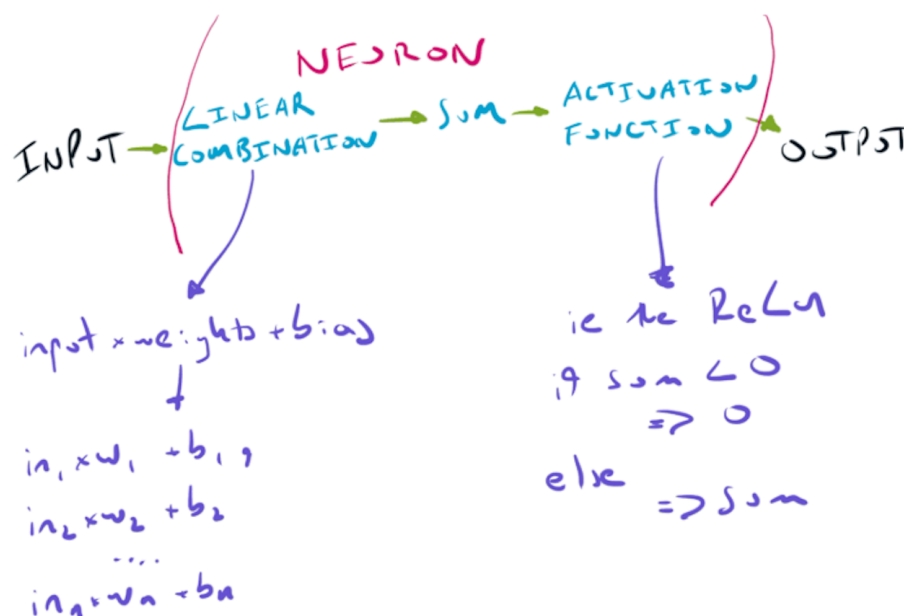 NEURON
INPUT → LINEAR COMBINATION → SUM → ACTIVATION FUNCTION → OUTPUT
input × weights + bias
in₁ × w₁ + b₁,
in₂ × w₂ + b₂
....
inₙ × wₙ + bₙ
ie the ReLu
if sum < 0
=> 0
else
=> sum